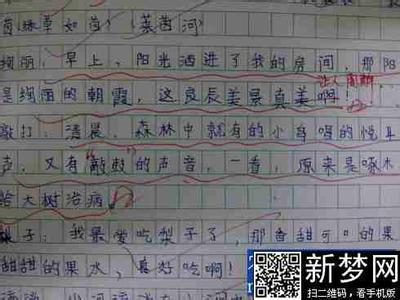 茵绿草如茵)(莱茵河)
绚丽:早上,阳光洒进了我的房间,那阳
是绚丽的朝霞,这良辰美景真美啊!
敲打:清晨,森林中就有的小鸟唱的悦耳
声,又有"敲敲"的声音,一看,原来是啄木
给大树治病
梨子:我最爱吃梨子了,那香甜可口的果
甜甜的果水,真好吃啊!
新梦网
扫二维码,看手机版